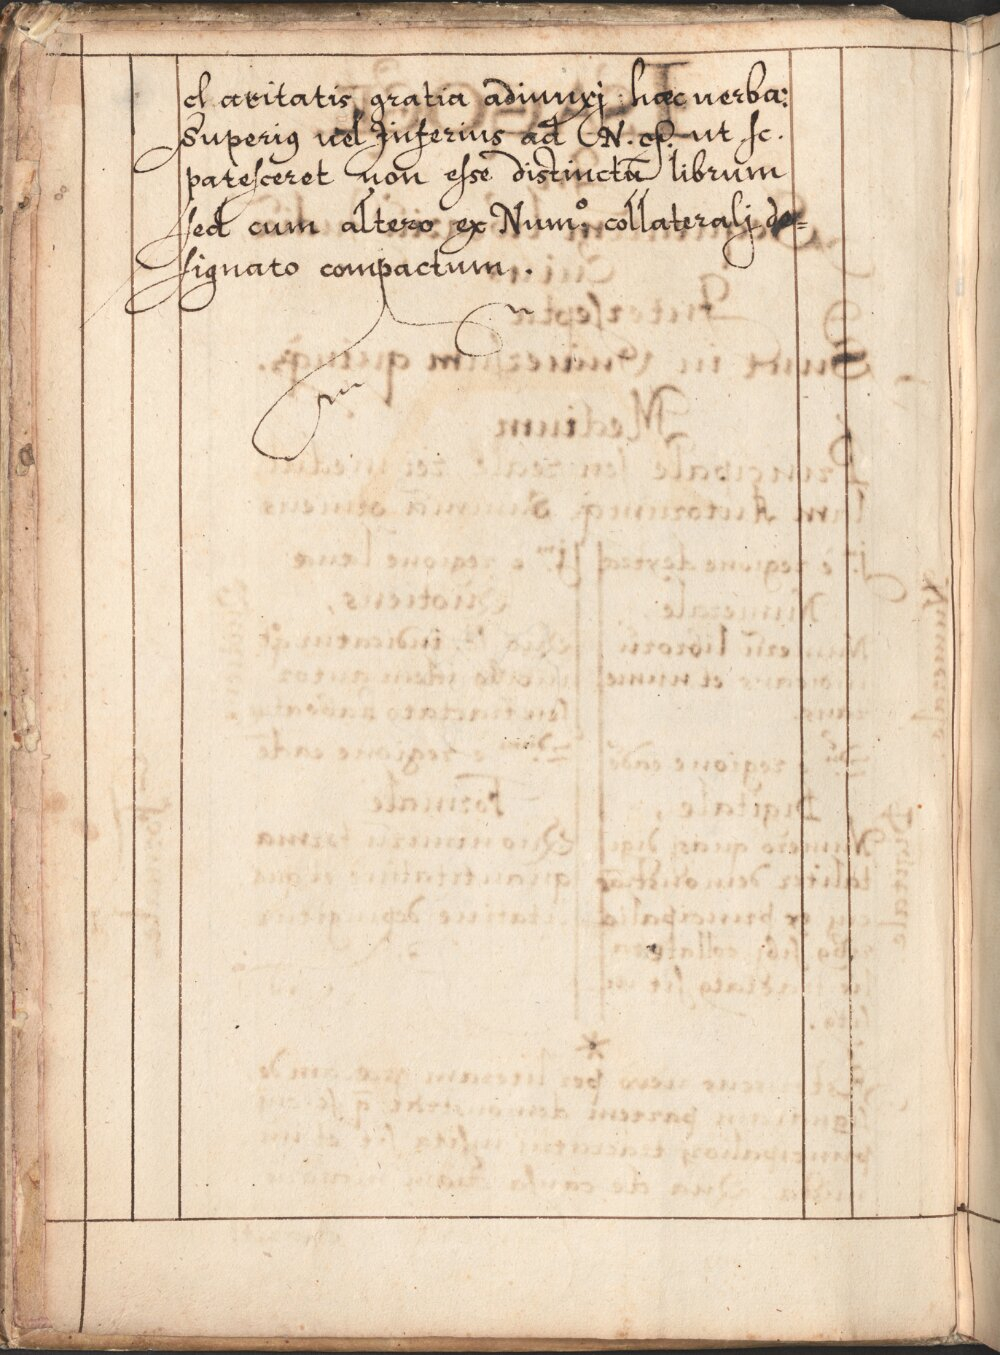 claritatis gratia adiunxj hæc uerba:
Superiꝰ uel Inferius ad N. ut sc.
paresceret non esse distinctū librum
sed cum altero ex Num.º collateralj de=
signato compactum.